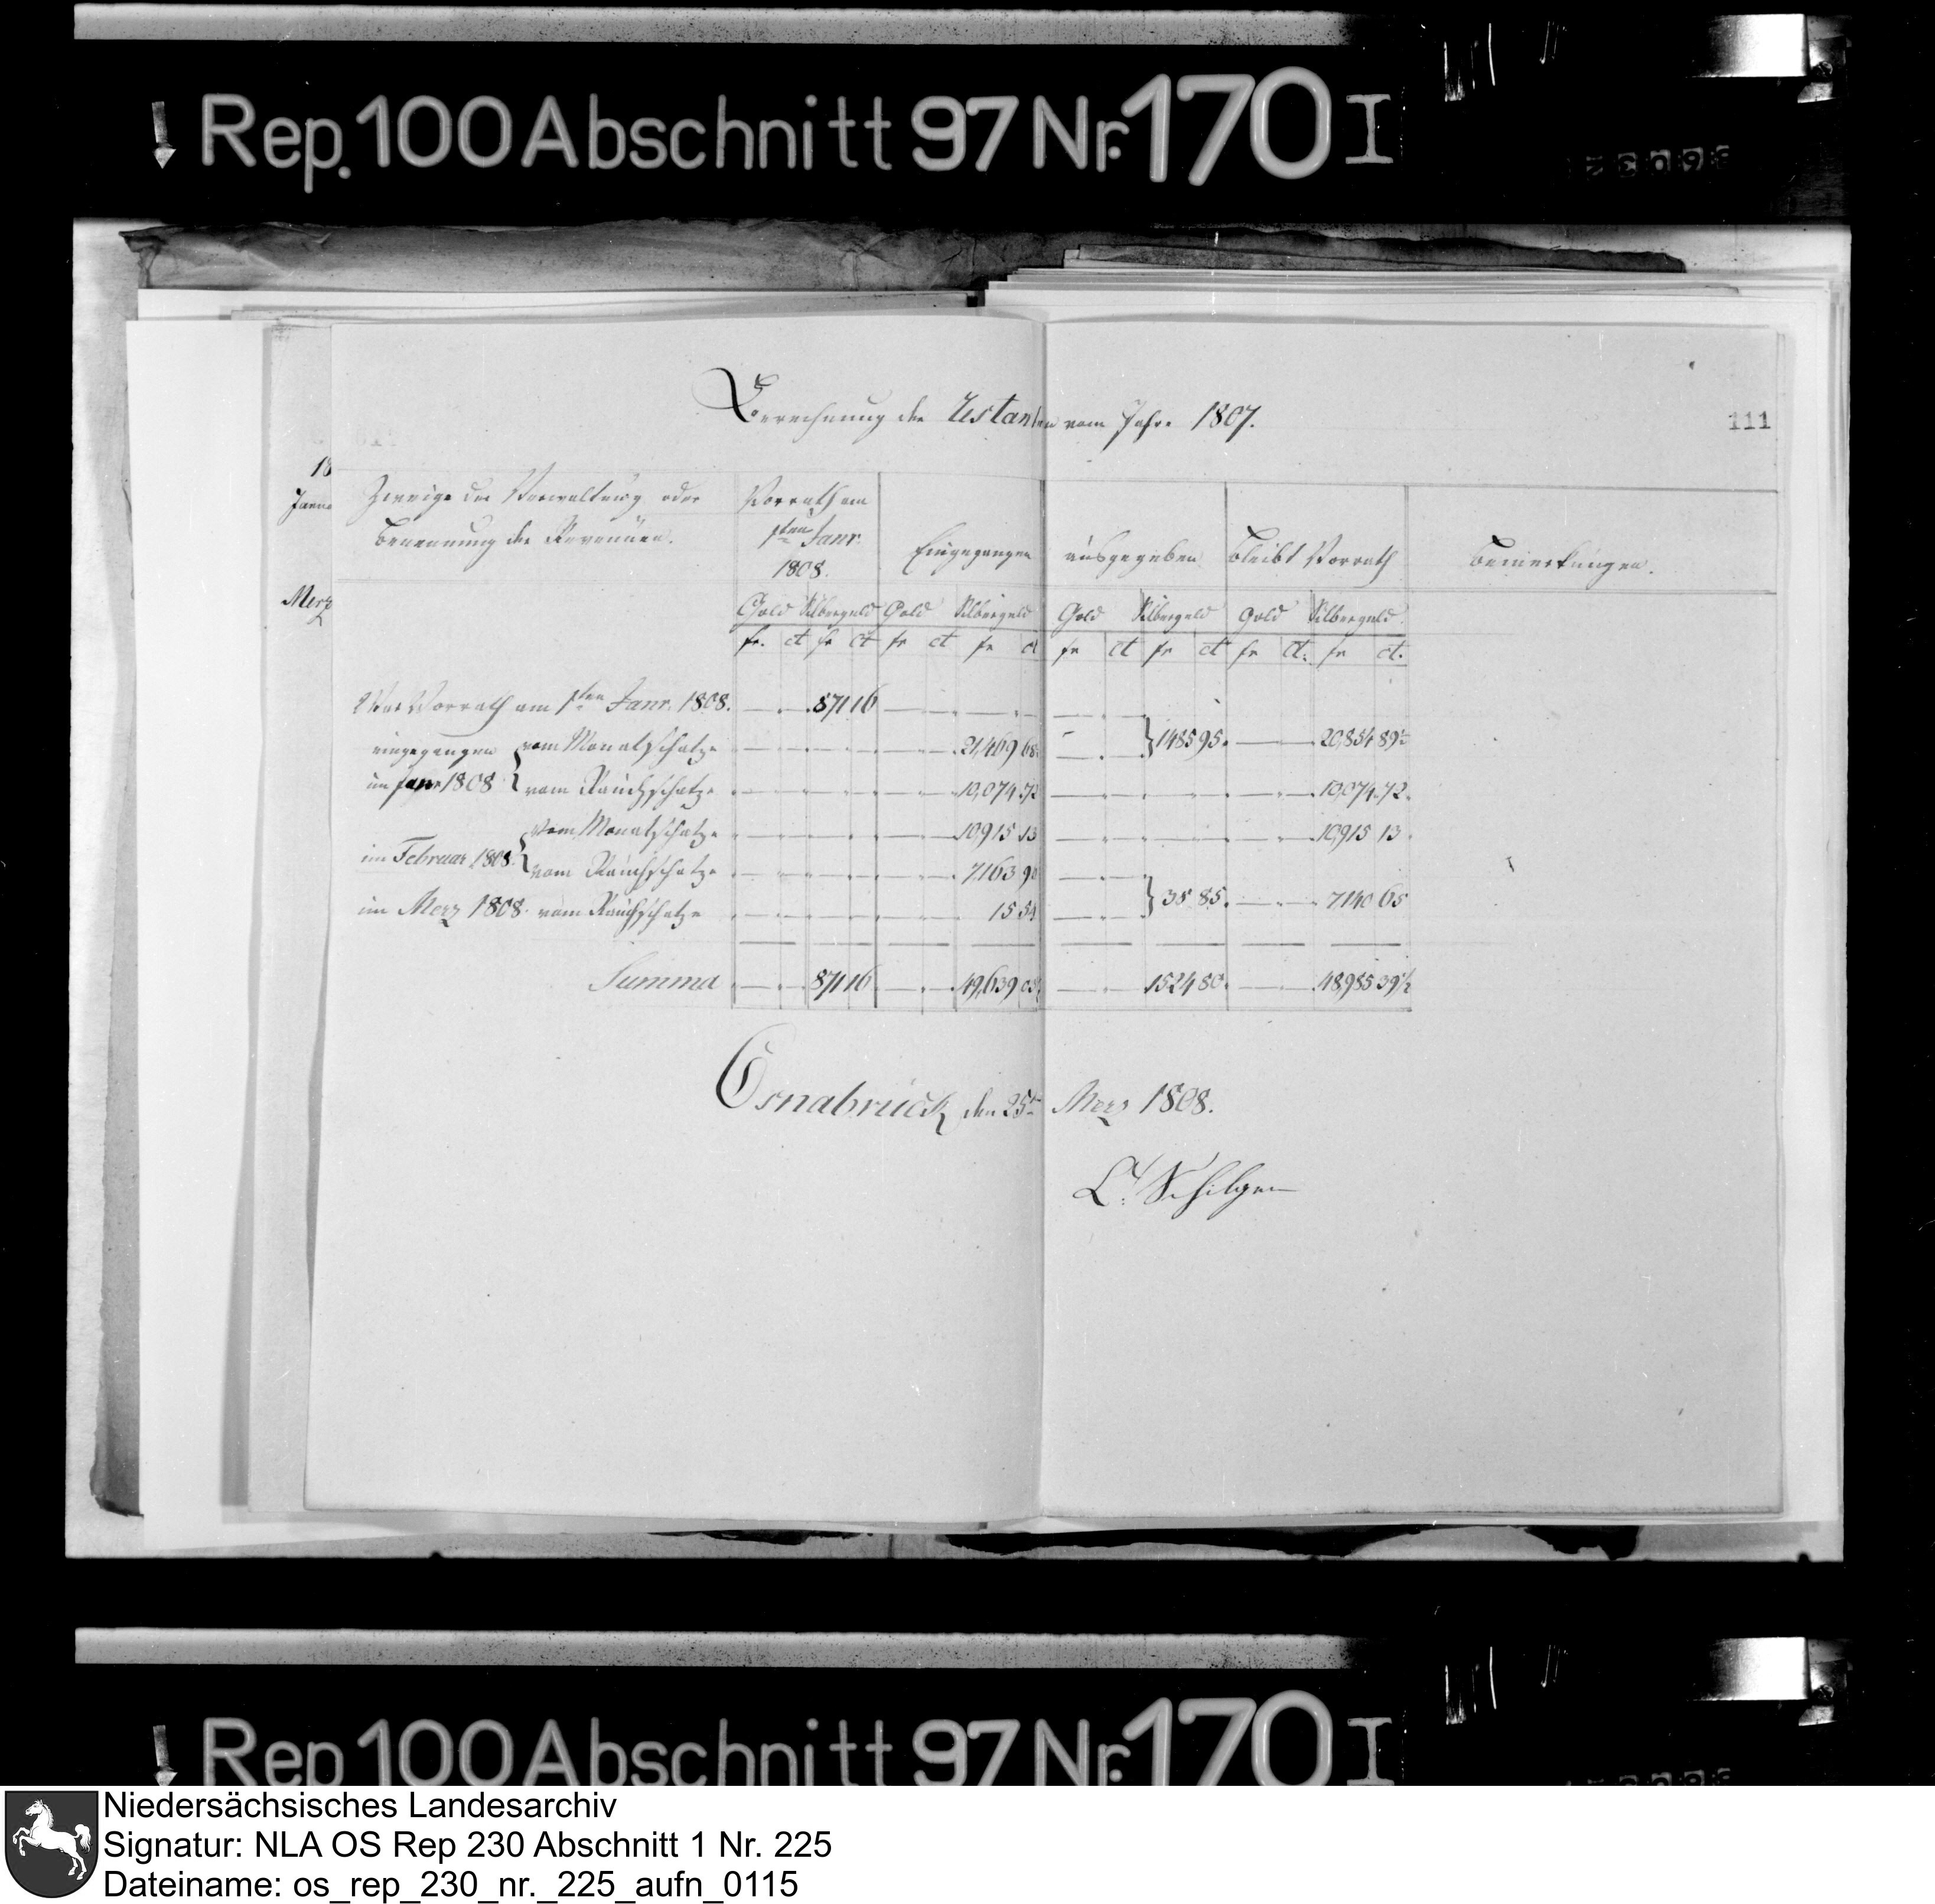 Rep. 100 Abschnitt 97 Nr. 170 I
Berechnung der Restanten vom Jahre 1807.
111
18
Janua
Merz
Zweige der Verwaltung oder
Benennung der Revenüen.
Vorrath am
1ten Janr.
1808.
Eingegangen
ausgegeben
Bleibt Vorrath
Bemerkungen.
Gold Silbergeld Gold Silbergeld Gold Silbergeld Gold Silbergeld.
fr. ct fr ct fr ct fr ct fr ct fr ct fr ct. fr ct.
Vorrath am 1ten Janr. 1808. 871 16
eingegangen vom Monatschatze 21,469 68 1485 95. 20,854 89½
im Janr 1808 vom Rauchschatze 10,074 72 10,074 72.
vom Monatschatze 10,915 13 10,915 13.
im Februar 1808.
vom Rauchschatze 7,163
im Merz 1808. vom Rauchschatze 15 38 85. 7,140 65
Summa 871 16 49,639 1524 80. 48,985 39½
Osnabrück den 25t Merz 1808.
Schilgen
Rep 100 Abschnitt 97 Nr. 170 I
Niedersächsisches Landesarchiv
Signatur: NLA OS Rep 230 Abschnitt 1 Nr. 225
Dateiname: os_rep_230_nr._225_aufn_0115